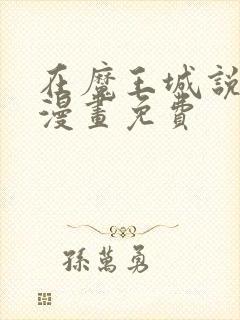 在魔王城說
漫畫免費
孫萬勇